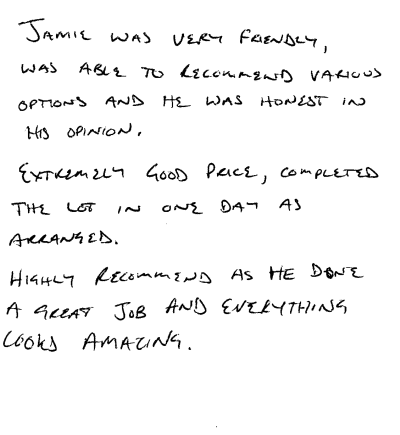 JAMIE WAS VERY FRIENDLY,
WAS ABLE TO RECOMMEND VARIOUS
OPTIONS AND HE WAS HONEST IN
HIS OPINION.
EXTREMELY GOOD PRICE, COMPLETED
THE LOT IN ONE DAY AS
ARRANGED.
HIGHLY RECOMMEND AS HE DONE
A GREAT JOB AND EVERYTHING
LOOKS AMAZING.